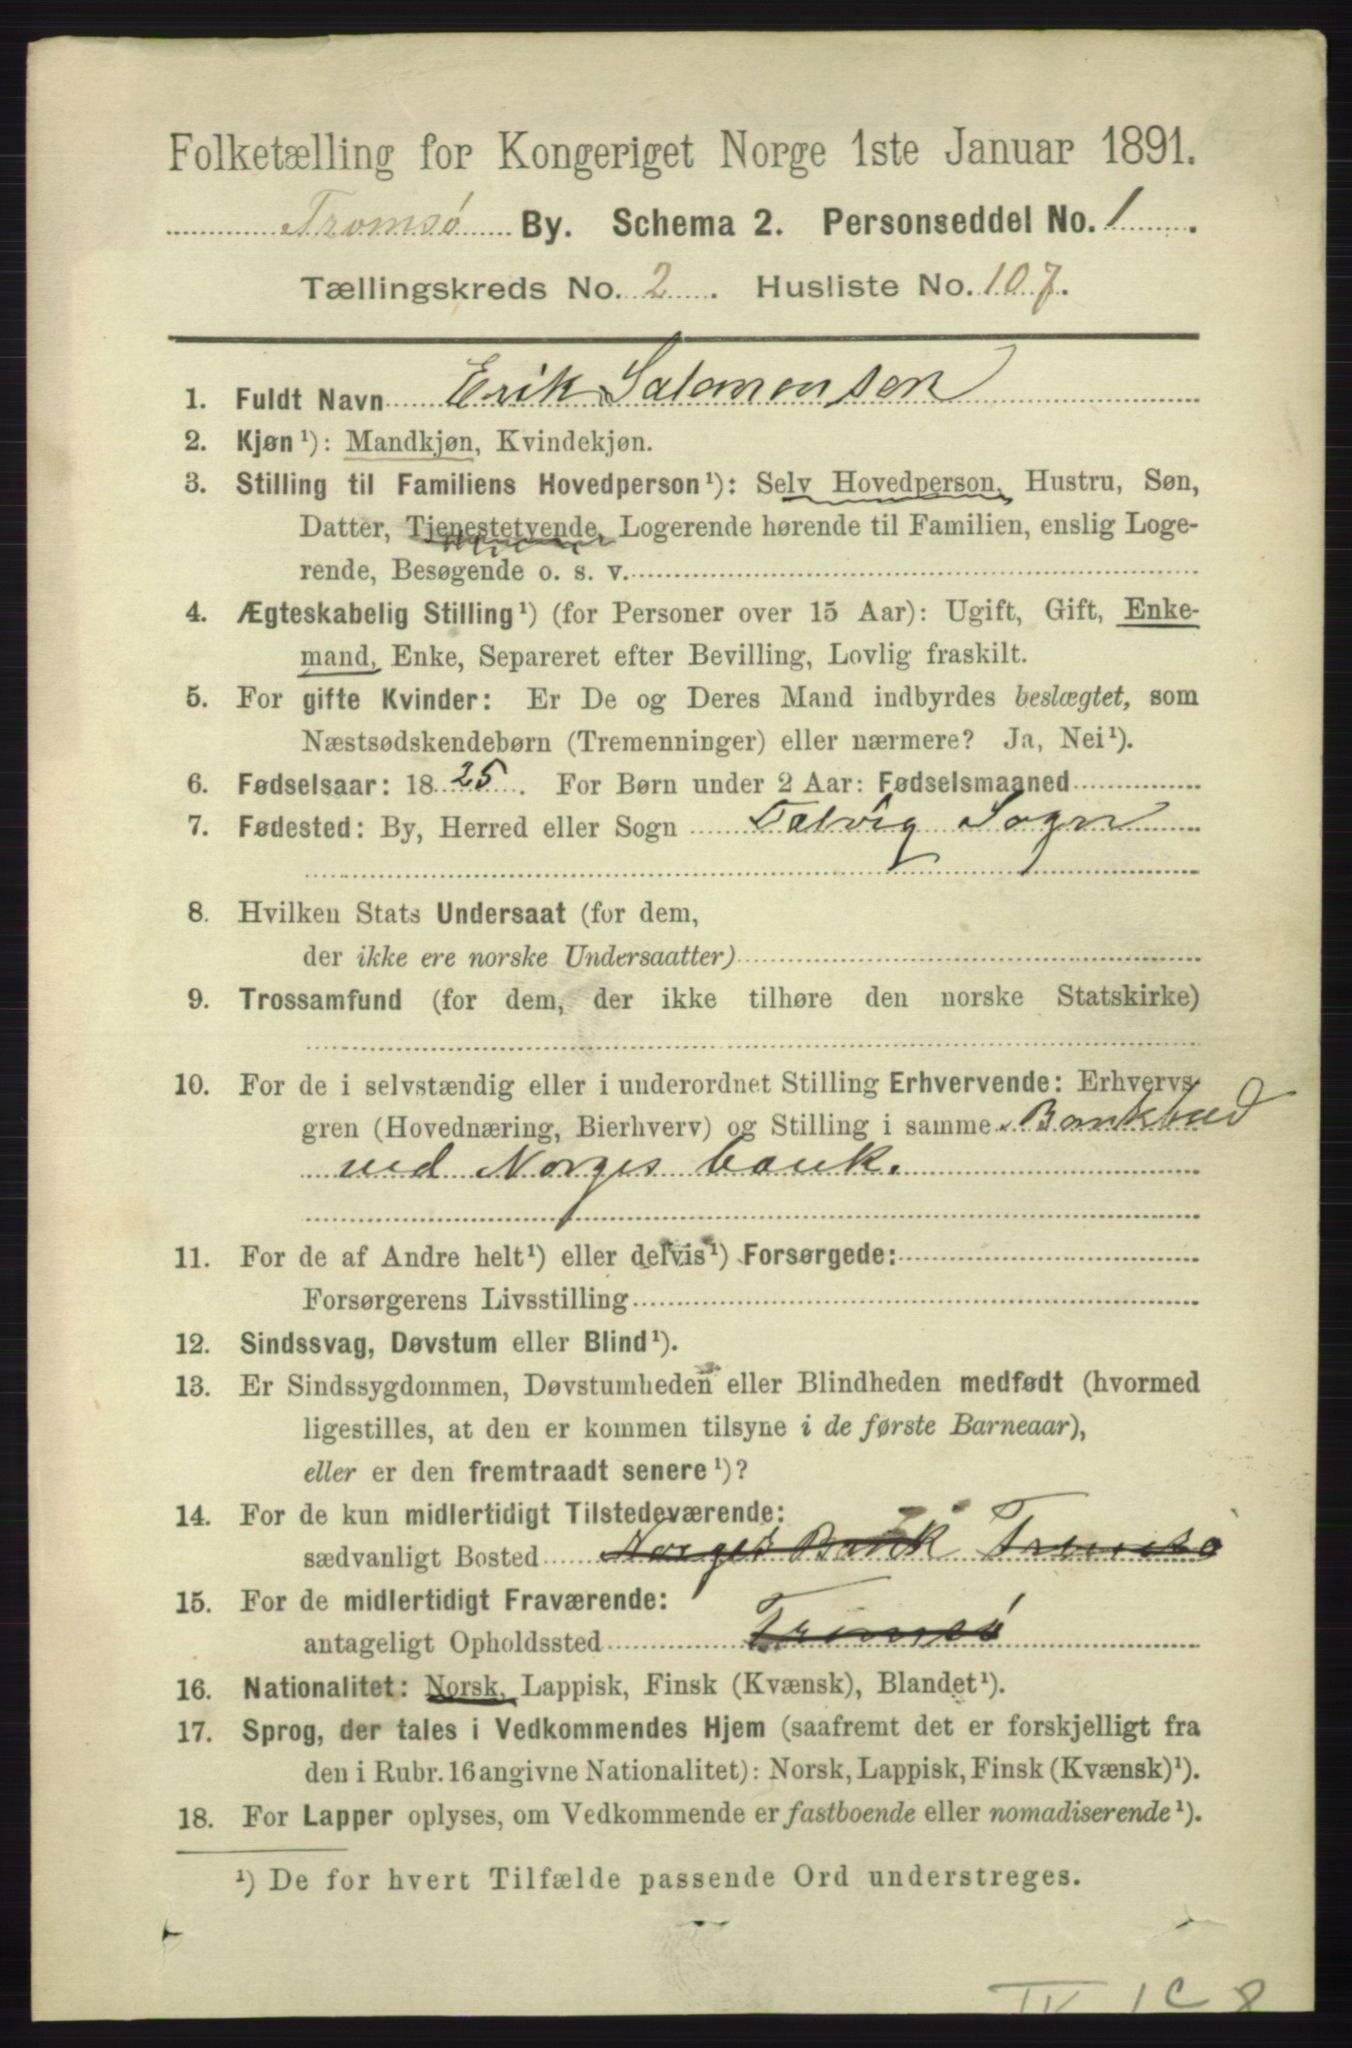 Folketælling for Kongeriget Norge 1ste Januar 1891.
Tromsø By. Schema 2. Personseddel No. 1.
Tællingskreds No. 2. Husliste No. 107.
1. Fuldt Navn Erik Salomonsen
2. Kjøn¹): Mandkjøn, Kvindekjøn.
3. Stilling til Familiens Hovedperson¹): Selv Hovedperson, Hustru, Søn,
Datter, Tjenestetyende, Logerende hørende til Familien, enslig Loge-
rende, Besøgende o. s. v.
4. Ægteskabelig Stilling¹) (for Personer over 15 Aar): Ugift, Gift, Enke-
mand, Enke, Separeret efter Bevilling, Lovlig fraskilt.
5. For gifte Kvinder: Er De og Deres Mand indbyrdes beslægtet, som
Næstsødskendebørn (Tremenninger) eller nærmere? Ja, Nei¹).
6. Fødselsaar: 1825. For Børn under 2 Aar: Fødselsmaaned
7. Fødested: By, Herred eller Sogn Talvig Sogn
8. Hvilken Stats Undersaat (for dem,
der ikke ere norske Undersaatter)
9. Trossamfund (for dem, der ikke tilhøre den norske Statskirke)
10. For de i selvstændig eller i underordnet Stilling Erhvervende: Erhvervs-
gren (Hovednæring, Bierhverv) og Stilling i samme Bankbud
ved Norges bank.
11. For de af Andre helt¹) eller delvis¹) Forsørgede:
Forsørgerens Livsstilling
12. Sindssvag, Døvstum eller Blind¹).
13. Er Sindssygdommen, Døvstumheden eller Blindheden medfødt (hvormed
ligestilles, at den er kommen tilsyne i de første Barneaar),
eller er den fremtraadt senere¹)?
14. For de kun midlertidigt Tilstedeværende:
sædvanligt Bosted Norges Bank Tromsø
15. For de midlertidigt Fraværende:
antageligt Opholdssted Tromsø
16. Nationalitet: Norsk, Lappisk, Finsk (Kvænsk), Blandet¹).
17. Sprog, der tales i Vedkommendes Hjem (saafremt det er forskjelligt fra
den i Rubr. 16 angivne Nationalitet): Norsk, Lappisk, Finsk (Kvænsk)¹).
18. For Lapper oplyses, om Vedkommende er fastboende eller nomadiserende¹).
¹) De for hvert Tilfælde passende Ord understreges.
IV 1C 8